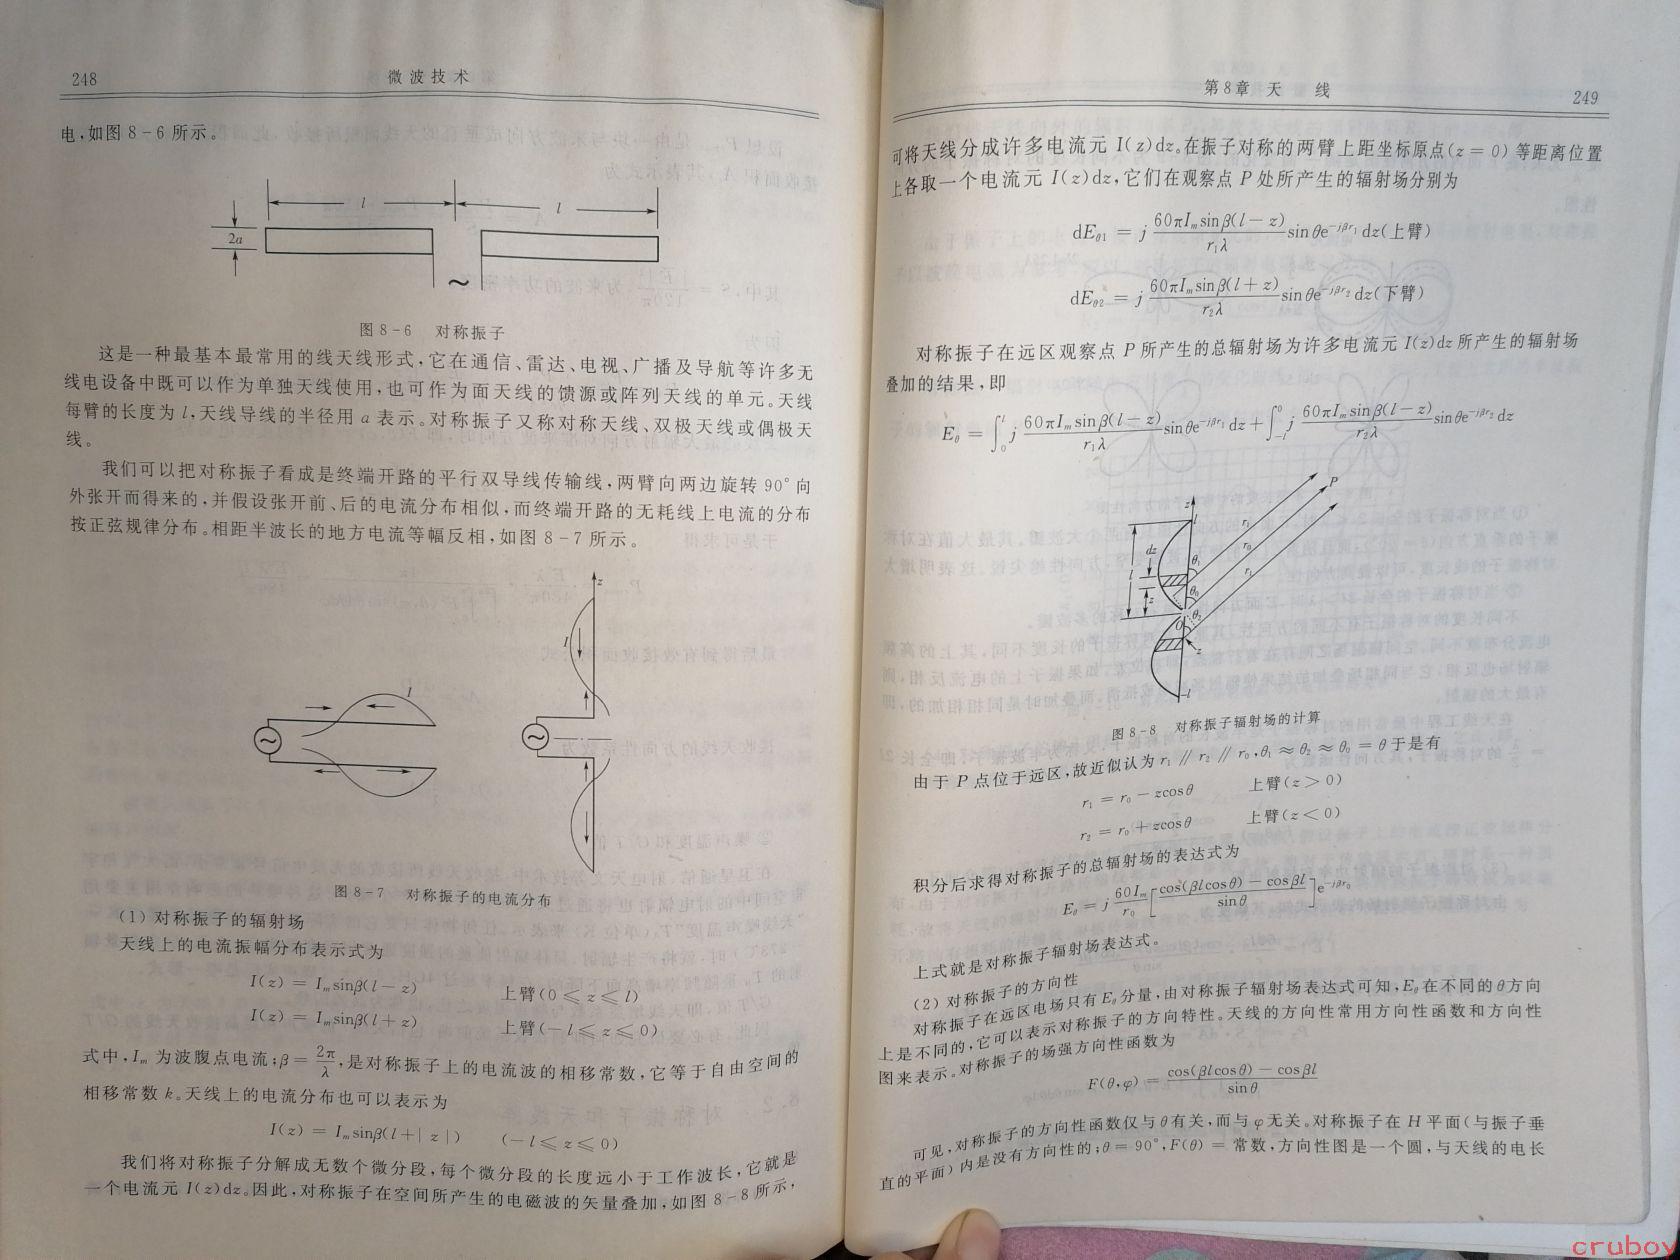 248
微波技术
电,如图 8-6 所示。
l
l
2a
~
图 8-6 对称振子
这是一种最基本最常用的线天线形式,它在通信、雷达、电视、广播及导航等许多无
线电设备中既可以作为单独天线使用,也可作为面天线的馈源或阵列天线的单元。天线
每臂的长度为 l,天线导线的半径用 a 表示。对称振子又称对称天线、双极天线或偶极天
线。
我们可以把对称振子看成是终端开路的平行双导线传输线,两臂向两边旋转 90° 向
外张开而得来的,并假设张开前、后的电流分布相似,而终端开路的无耗线上电流的分布
按正弦规律分布。相距半波长的地方电流等幅反相,如图 8-7 所示。
z
I
I
~
~
图 8-7 对称振子的电流分布
(1) 对称振子的辐射场
天线上的电流振幅分布表示式为
I(z) = I_m sinβ(l-z) 上臂(0 ≤ z ≤ l)
I(z) = I_m sinβ(l+z) 上臂(-l ≤ z ≤ 0)
式中,I_m 为波腹点电流;β = 2π/λ,是对称振子上的电流波的相移常数,它等于自由空间的
相移常数 k。天线上的电流分布也可以表示为
I(z) = I_m sinβ(l+|z|) (-l ≤ z ≤ 0)
我们将对称振子分解成无数个微分段,每个微分段的长度远小于工作波长,它就是
一个电流元 I(z)dz。因此,对称振子在空间所产生的电磁波的矢量叠加,如图 8-8 所示,
第8章 天 线
249
可将天线分成许多电流元 I(z)dz。在振子对称的两臂上距坐标原点(z = 0) 等距离位置
上各取一个电流元 I(z)dz,它们在观察点 P 处所产生的辐射场分别为
dE_θ1 = j (60πI_m sinβ(l-z))/(r₁λ) sinθe^(-jβr₁) dz(上臂)
dE_θ2 = j (60πI_m sinβ(l+z))/(r₂λ) sinθe^(-jβr₂) dz(下臂)
对称振子在远区观察点 P 所产生的总辐射场为许多电流元 I(z)dz 所产生的辐射场
叠加的结果,即
E_θ = ∫₀^l j (60πI_m sinβ(l-z))/(r₁λ) sinθe^(-jβr₁) dz + ∫_(-l)^0 j (60πI_m sinβ(l-z))/(r₂λ) sinθe^(-jβr₂) dz
P
z
l
r₁
dz
θ₁
r₀
l
r₁
z
θ₀
O
θ₂
z
-l
图 8-8 对称振子辐射场的计算
由于 P 点位于远区,故近似认为 r₁ // r₂ // r₀,θ₁ ≈ θ₂ ≈ θ₀ = θ 于是有
r₁ = r₀ - zcosθ 上臂(z > 0)
r₂ = r₀ + zcosθ 上臂(z < 0)
积分后求得对称振子的总辐射场的表达式为
E_θ = j (60I_m)/r₀ [(cos(βlcosθ) - cosβl)/sinθ] e^(-jβr₀)
上式就是对称振子辐射场表达式。
(2) 对称振子的方向性
对称振子在远区电场只有 E_θ 分量,由对称振子辐射场表达式可知,E_θ 在不同的 θ 方向
上是不同的,它可以表示对称振子的方向特性。天线的方向性常用方向性函数和方向性
图来表示。对称振子的场强方向性函数为
F(θ,φ) = (cos(βlcosθ) - cosβl)/sinθ
可见,对称振子的方向性函数仅与 θ 有关,而与 φ 无关。对称振子在 H 平面(与振子垂
直的平面) 内是没有方向性的;θ = 90°,F(θ) = 常数,方向性图是一个圆,与天线的电长
cruboy